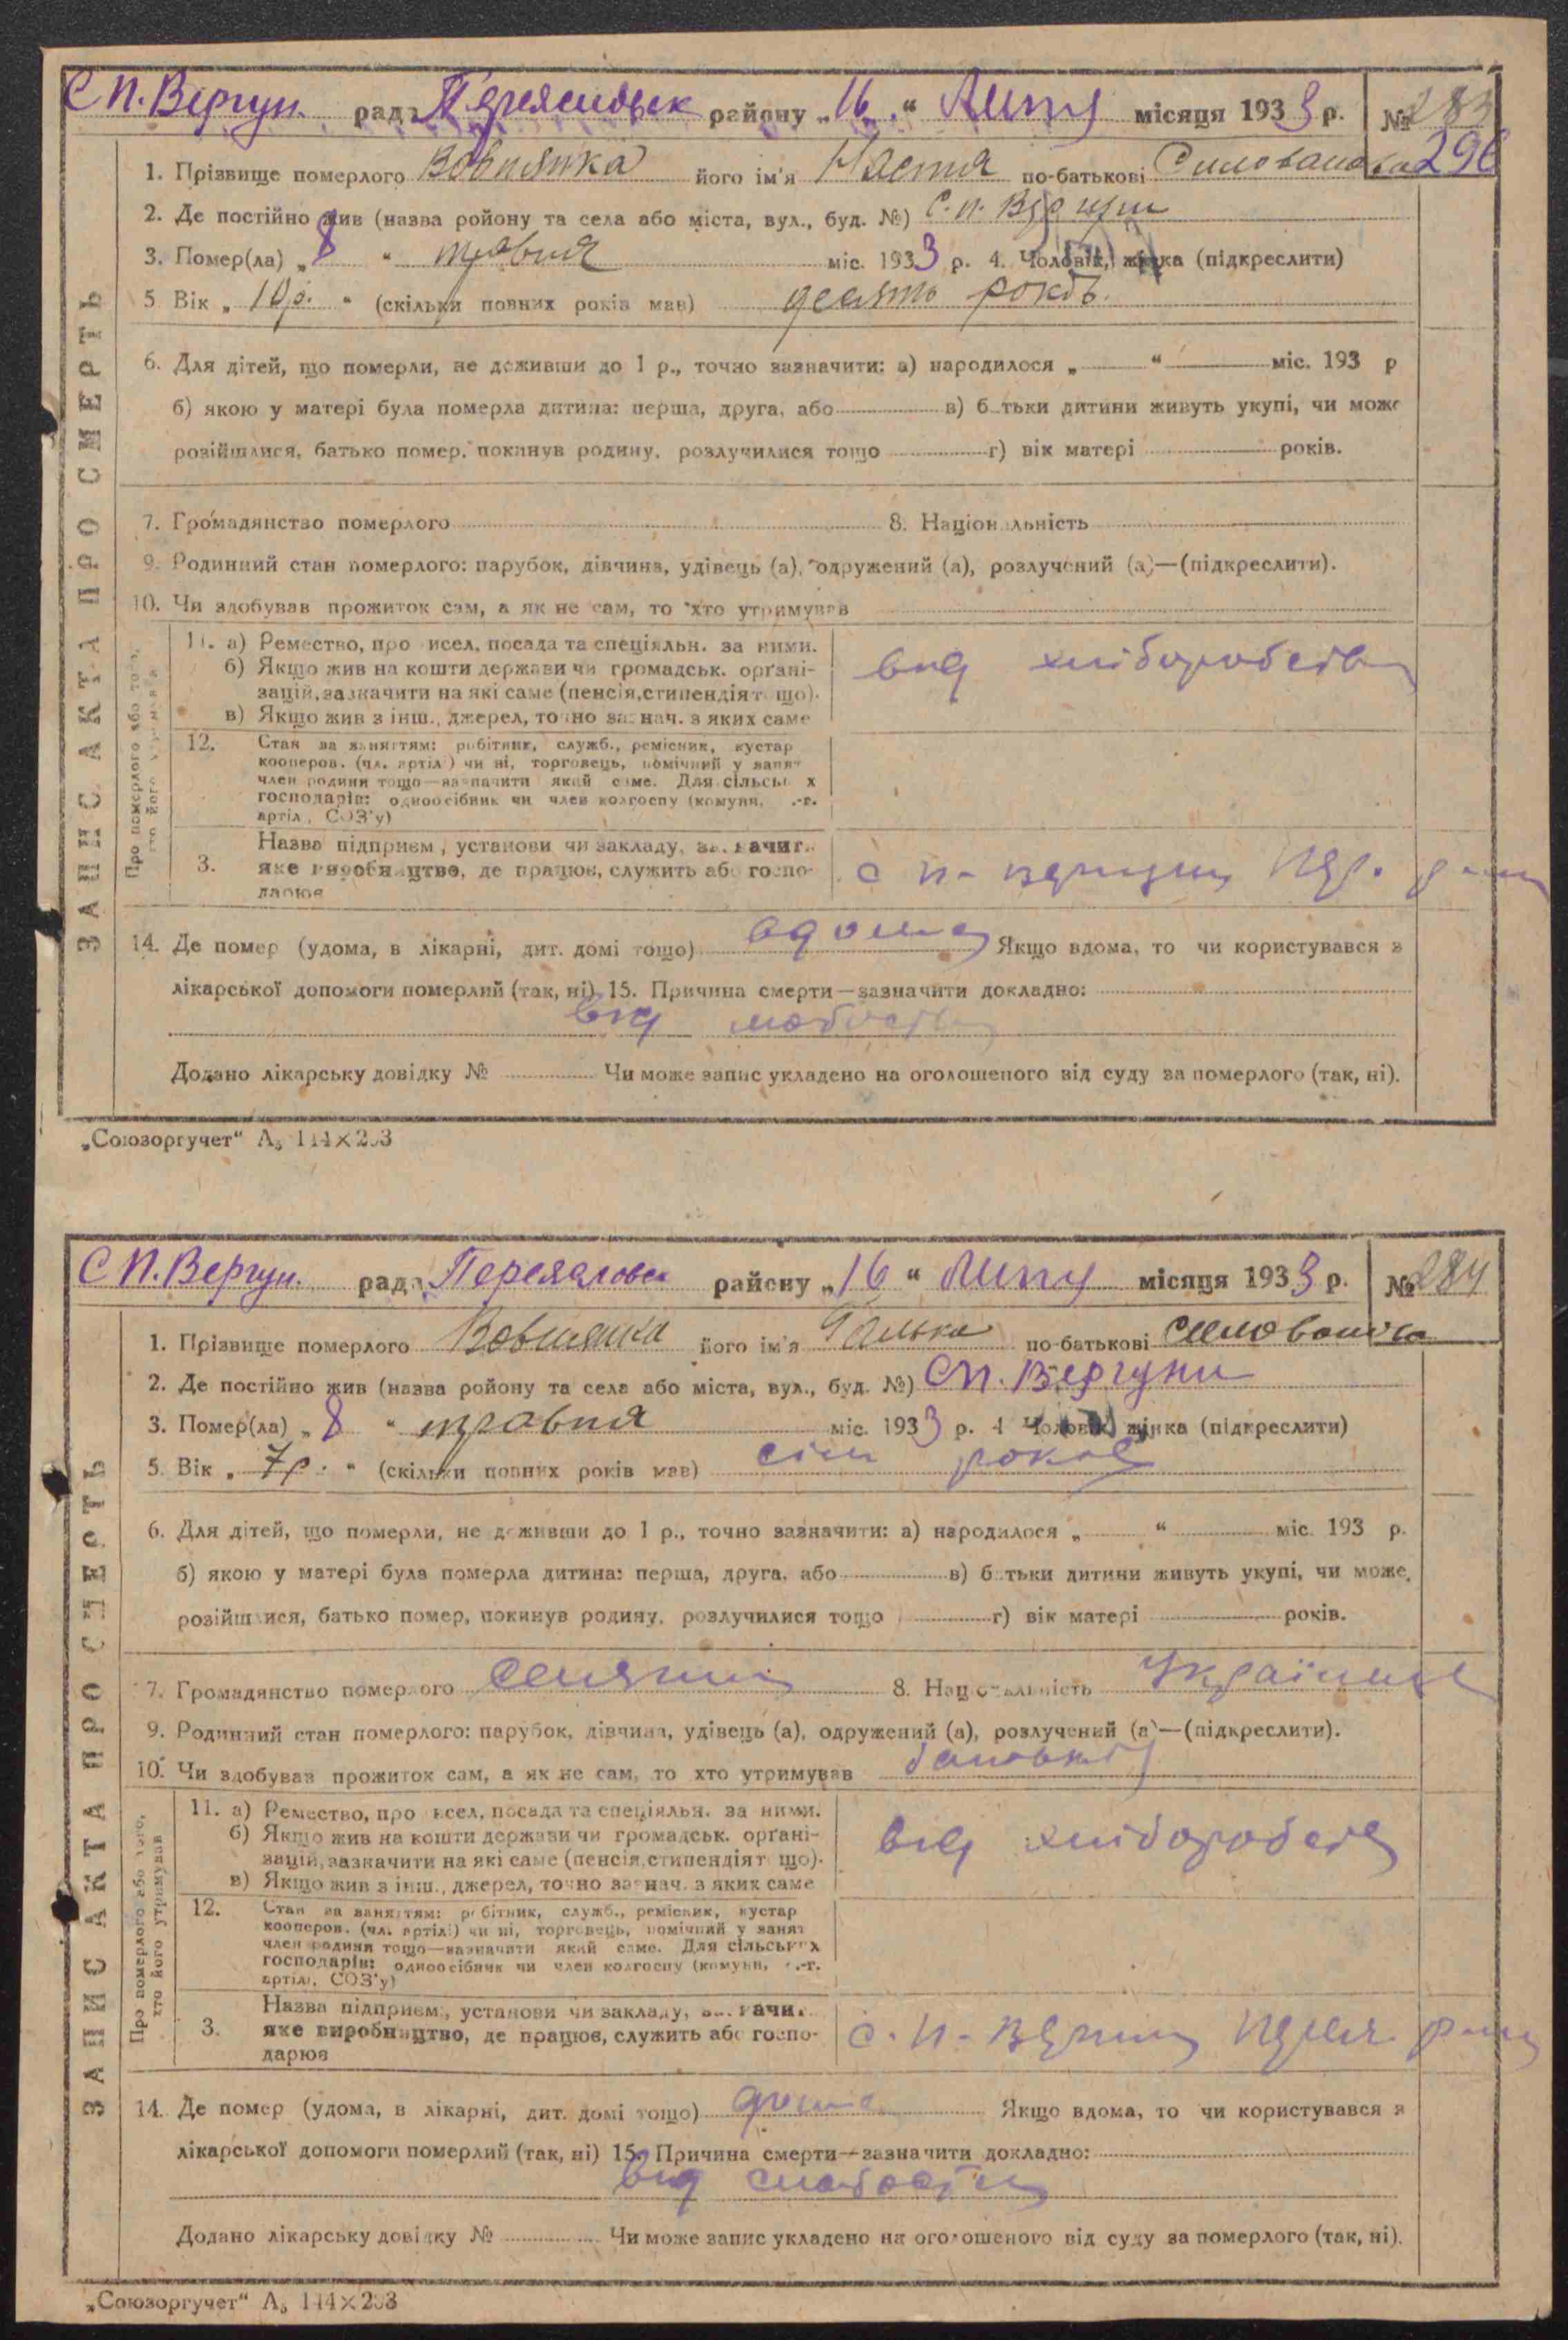 С П. Вергун. рада Переяславськ району „16“ Липц місяця 1933 р. № 283
296
1. Прізвище померлого Вовнянка його ім'я Настя по-батькові
2. Де постійно жив (назва ройону та села або міста, вул., буд. №) С. п. Вергуни
3. Помер(ла) „8“ травня міс. 1933 р. 4. Чоловік, жінка (підкреслити)
5 Вік „10 р.“ (скільки повних років мав) десять років.
6. Для дітей, що померли, не доживши до 1 р., точно зазначити: а) народилося „ “ міс. 193 р
б) якою у матері була померла дитина: перша, друга, або в) батьки дитини живуть укупі, чи може
розійшлися, батько помер, покинув родину, розлучилися тощо г) вік матері років.
7. Громадянство померлого 8. Національність
9. Родинний стан померлого: парубок, дівчина, удівець (а), одружений (а), розлучений (а)—(підкреслити).
10. Чи здобував прожиток сам, а як не сам, то хто утримував
ЗАПИС АКТА ПРО СМЕРТЬ
Про померлого або того, хто його утримував
11. а) Ремество, про исел, посада та спеціяльн. за ними.
б) Якщо жив на кошти держави чи громадськ. органі-
зацій, зазначити на які саме (пенсія, стипендія т що).
в) Якщо жив з інш., джерел, точно зазнач. з яких саме
від хліборобства
12. Стан за заняттям: робітник, служб., ремісник, кустар
кооперов. (чл. артілі) чи ні, торговець, помічний у занят
член родини тощо—зазначити який саме. Для сільських
господарів: одноосібник чи член колгоспу (комуни, с.-г.
артіл., СОЗ'у)
Назва підприєм, установи чи закладу, зазначит.
3. яке виробництво, де працює, служить або госпо-
дарює
с п. Вергуни Пер. р-ну
14. Де помер (удома, в лікарні, дит. домі тощо) вдома Якщо вдома, то чи користувався з
лікарської допомоги померлий (так, ні) 15. Причина смерти—зазначити докладно:
від слабости
Додано лікарську довідку № Чи може запис укладено на оголошеного від суду за померлого (так, ні).
„Союзоргучет“ А₅ 144×203
С П. Вергун. рада Переяславськ району „16“ Липц місяця 1933 р. № 284
1. Прізвище померлого Вовнянка його ім'я Галька по-батькові
2. Де постійно жив (назва ройону та села або міста, вул., буд. №) СП. Вергуни
3. Помер(ла) „8“ травня міс. 1933 р. 4 Чоловік, жінка (підкреслити)
5. Вік „7 р.“ (скільки повних років мав) сім років
6. Для дітей, що померли, не доживши до 1 р., точно зазначити: а) народилося „ “ міс. 193 р.
б) якою у матері була померла дитина: перша, друга, або в) батьки дитини живуть укупі, чи може,
розійшлися, батько помер, покинув родину, розлучилися тощо г) вік матері років.
7. Громадянство померлого селянин 8. Національність Українка
9. Родинний стан померлого: парубок, дівчина, удівець (а), одружений (а), розлучений (а)—(підкреслити).
10. Чи здобував прожиток сам, а як не сам, то хто утримував батьки
ЗАПИС АКТА ПРО СМЕРТЬ
Про померлого або того, хто його утримував
11. а) Ремество, про исел, посада та спеціяльн. за ними.
б) Якщо жив на кошти держави чи громадськ. органі-
зацій, зазначити на які саме (пенсія, стипендія т що).
в) Якщо жив з інш., джерел, точно зазнач. з яких саме
від хліборобств
12. Стан за заняттям: робітник, служб., ремісник, кустар
кооперов. (чл. артілі) чи ні, торговець, помічний у занят
член родини тощо—зазначити який саме. Для сільських
господарів: одноосібник чи член колгоспу (комуни, с.-г.
артілі, СОЗ'у)
Назва підприєм., установи чи закладу, зазначит.
3. яке виробництво, де працює, служить або госпо-
дарює
с. п. Вергуни Перея. р-ну
14. Де помер (удома, в лікарні, дит. домі тощо) дома Якщо вдома, то чи користувався з
лікарської допомоги померлий (так, ні) 15. Причина смерти—зазначити докладно:
від слабости
Додано лікарську довідку № Чи може запис укладено на оголошеного від суду за померлого (так, ні).
„Союзоргучет“ А₅ 144×203